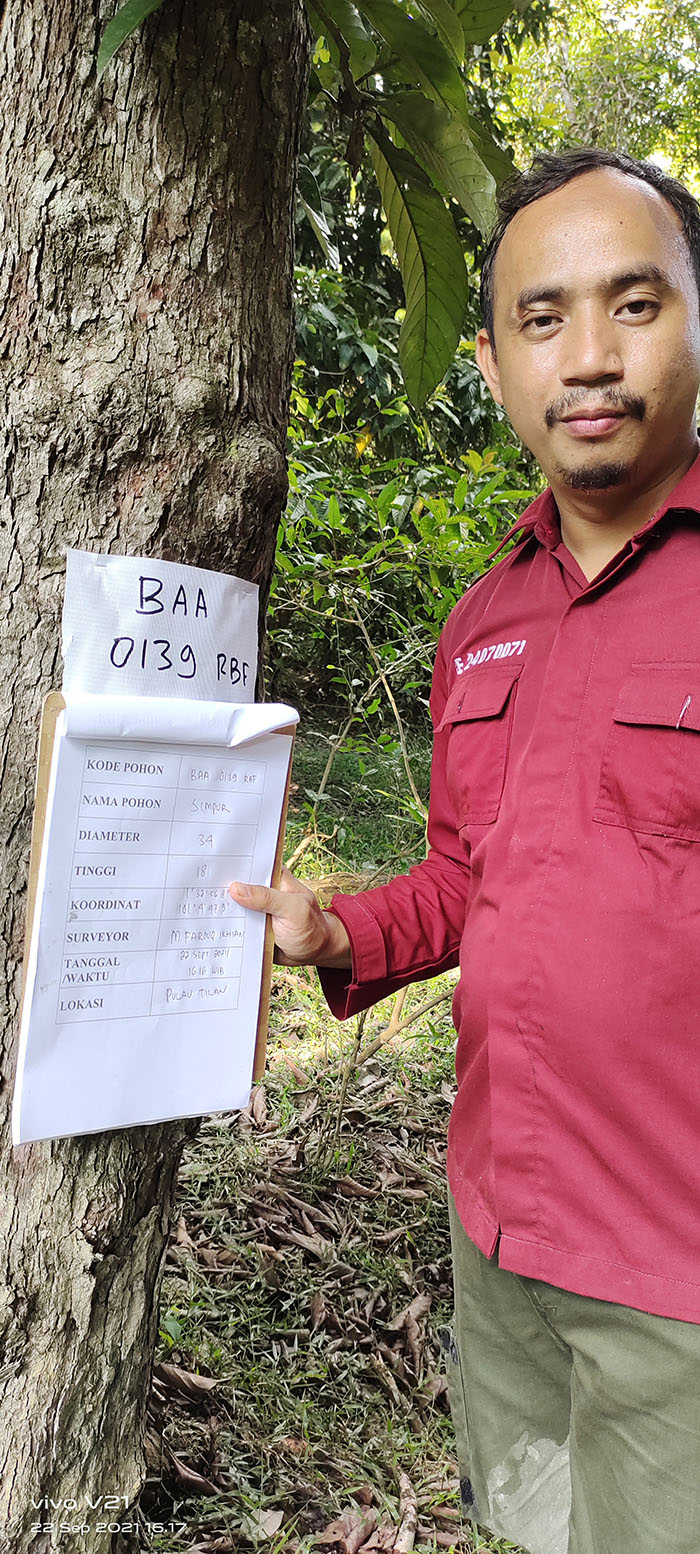 BAA
0139 RBF
KODE POHON BAA 0139 RBF
NAMA POHON SIMPUR
DIAMETER 34
TINGGI 18
KOORDINAT
101° 4' 47.9"
SURVEYOR M. FAROUQ IKHSAN
TANGGAL 22 SEPT 2021
/WAKTU 16:16 WIB
LOKASI PULAU TILAN
vivo V21
22 Sep 2021 16.17